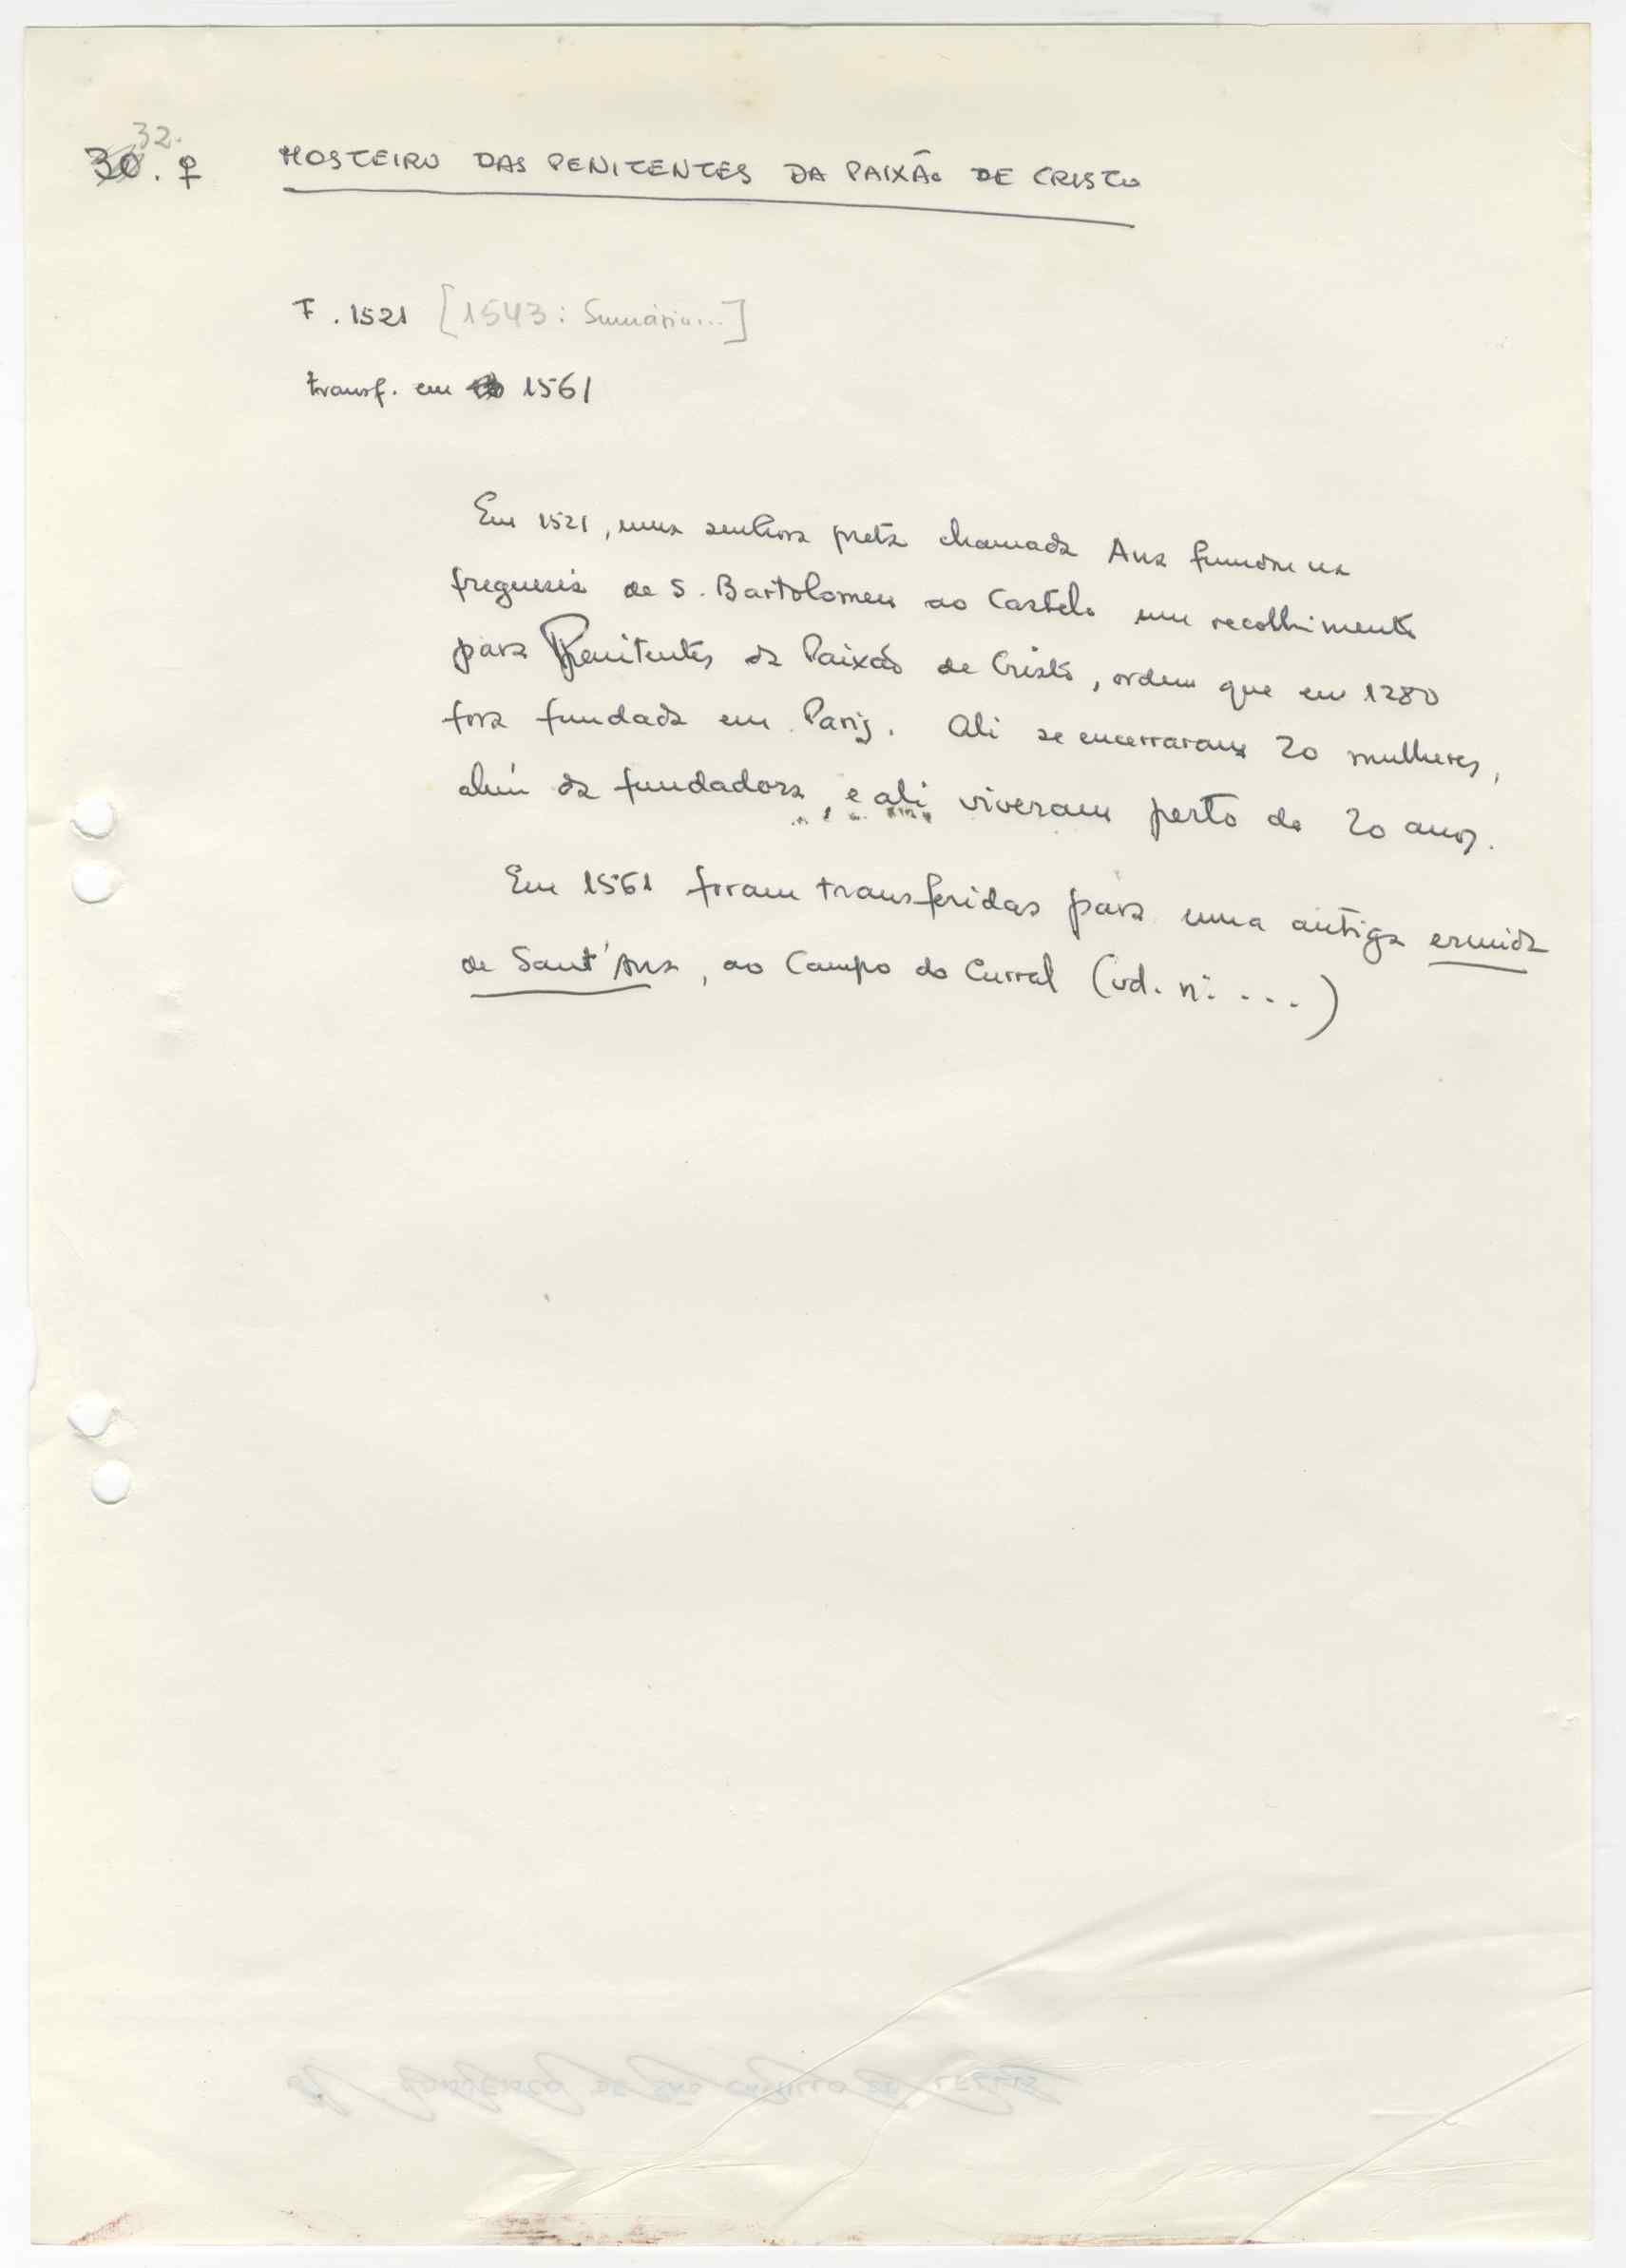 32.
30. ♀ MOSTEIRO DAS PENITENTES DA PAIXÃO DE CRISTO
F. 1521 [1543: Sumário...]
transf. em 1561
Em 1521, uma senhora preta chamada Ana fundou na
freguesia de S. Bartolomeu ao Castelo um recolhimento
para Penitentes da Paixão de Cristo, ordem que em 1280
fora fundada em Paris. Ali se encerraram 20 mulheres,
além da fundadora, e ali viveram perto de 20 anos.
Em 1561 foram transferidas para uma antiga ermida
de Sant'Ana, ao Campo do Curral (vd. nº ...)